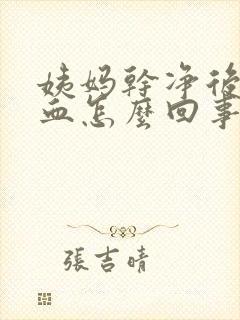 姨妈幹净後
血怎麼回事
張吉晴